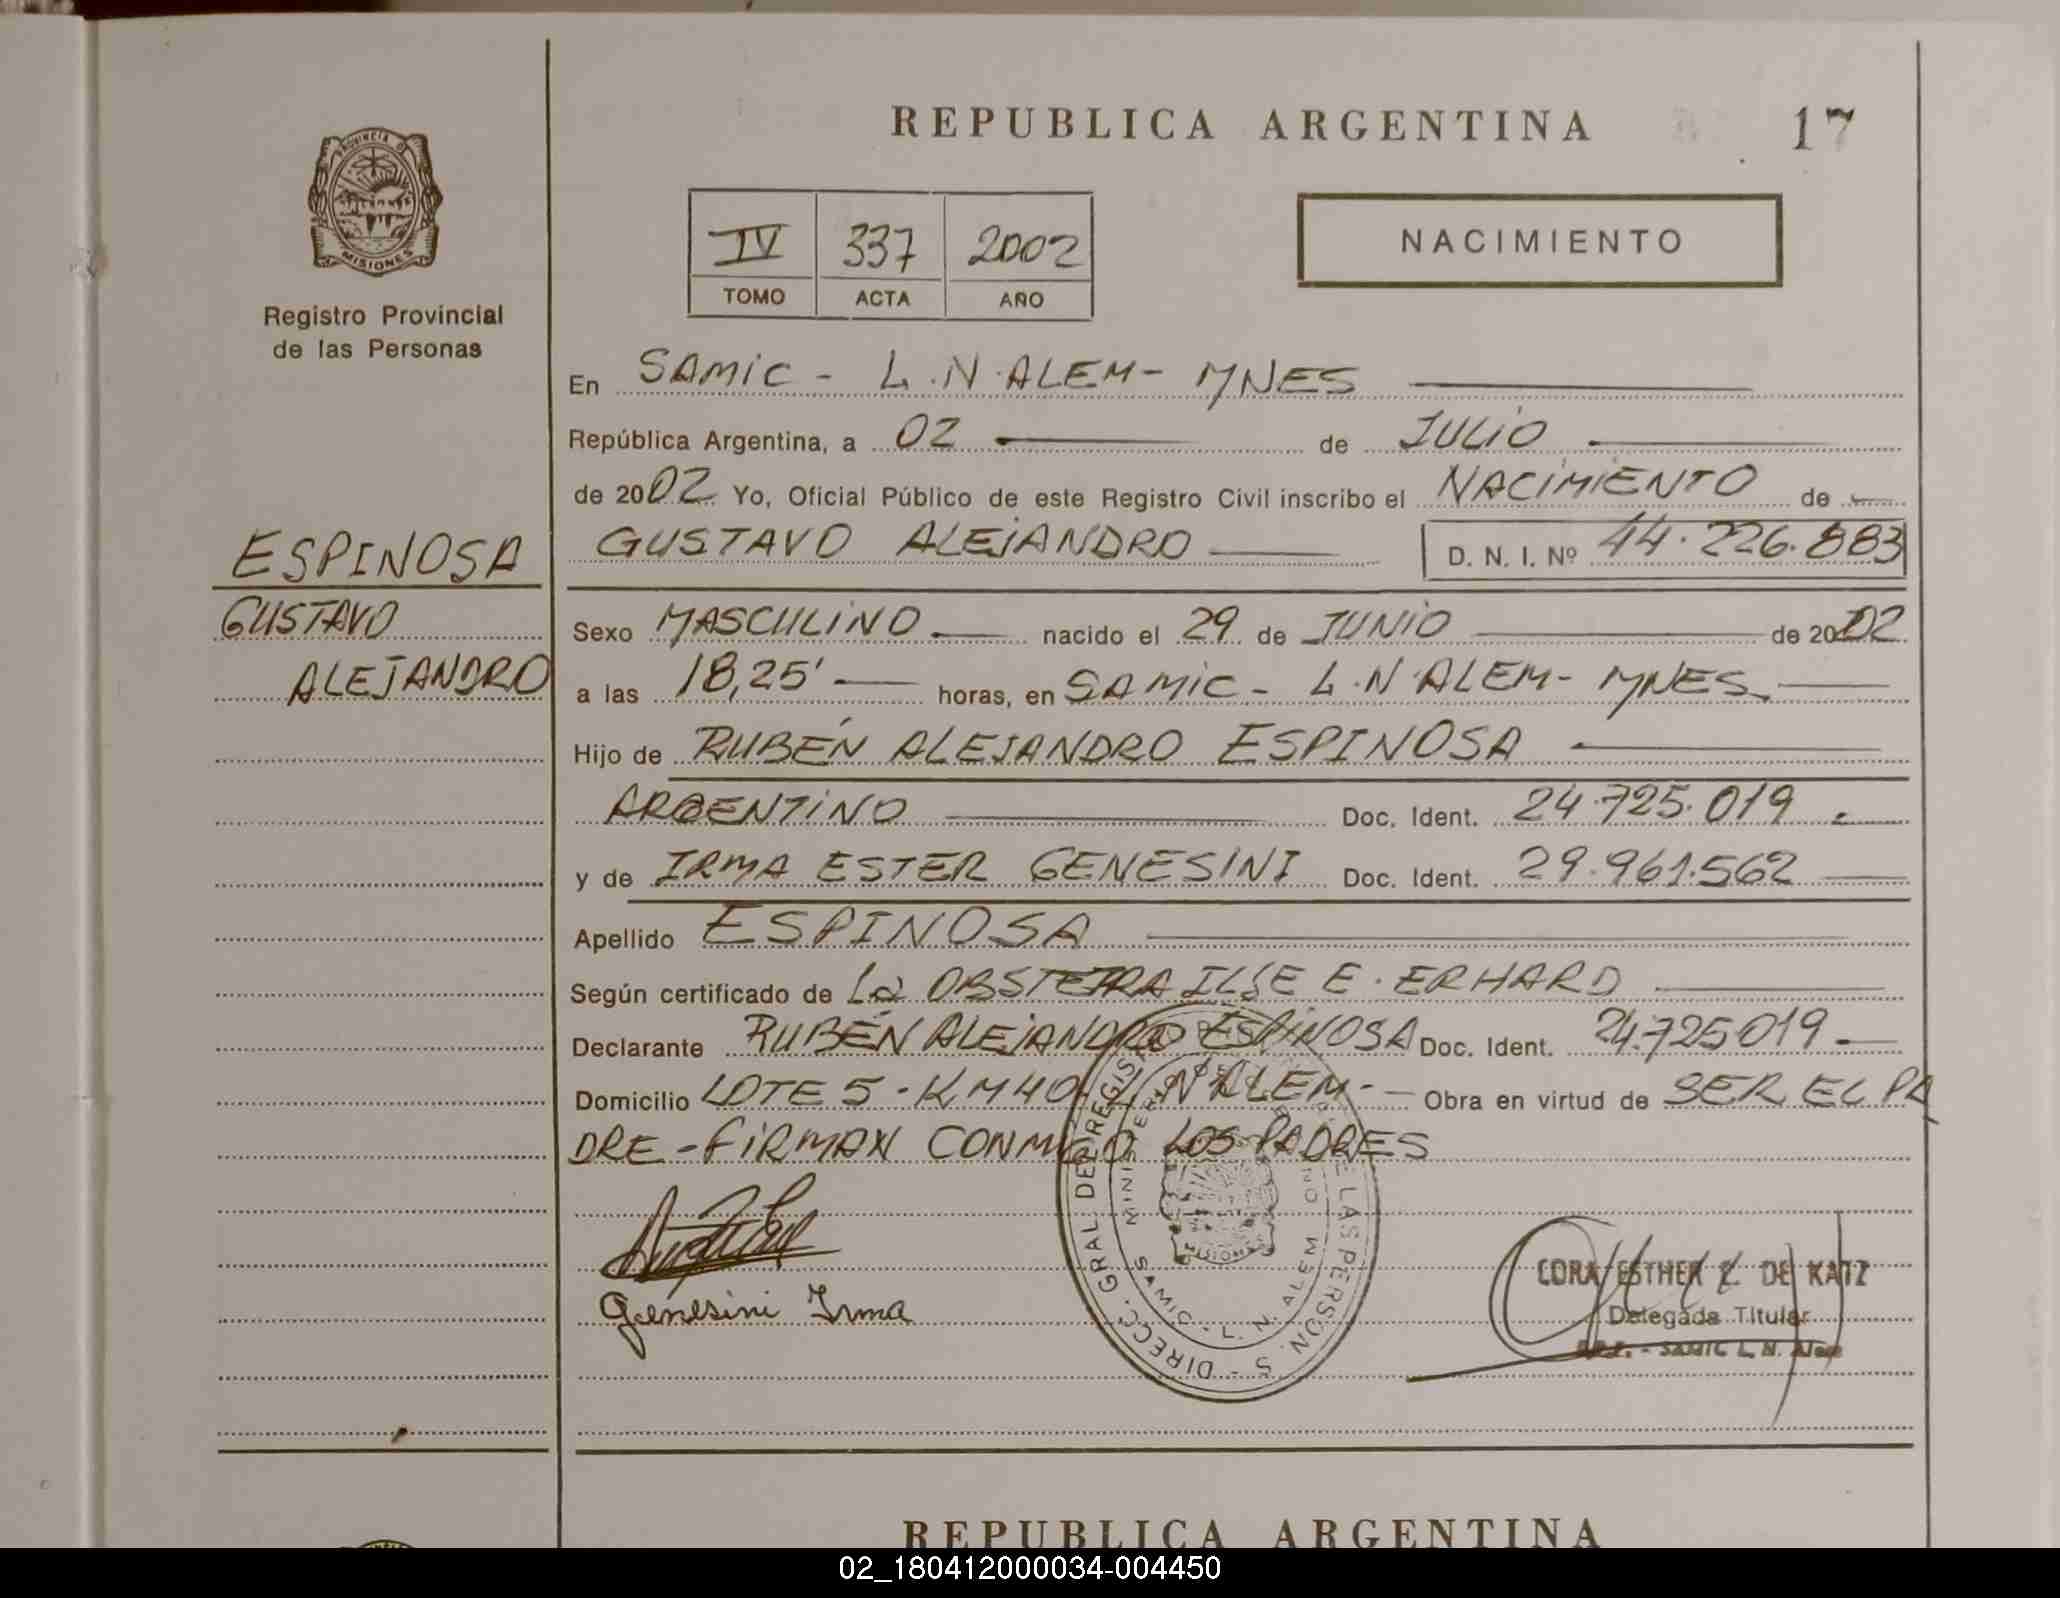 REPUBLICA ARGENTINA
17
PROVINCIA D
MISIONES
Registro Provincial
de las Personas
IV 337 2002
TOMO ACTA AÑO
NACIMIENTO
En SAMIC - L.N.ALEM - MNES
República Argentina, a 02 de JULIO
de 2002 Yo, Oficial Público de este Registro Civil inscribo el NACIMIENTO de
ESPINOSA
GUSTAVO ALEJANDRO D. N. I. Nº 44.226.883
GUSTAVO
ALEJANDRO
Sexo MASCULINO nacido el 29 de JUNIO de 2002
a las 18,25' horas, en SAMIC - L.N.ALEM - MNES
Hijo de RUBÉN ALEJANDRO ESPINOSA
ARGENTINO Doc. Ident. 24.725.019.
y de IRMA ESTER GENESINI Doc. Ident. 29.961.562
Apellido ESPINOSA
Según certificado de La OBSTETRA ILSE E. ERHARD
Declarante RUBÉN ALEJANDRO ESPINOSA Doc. Ident. 24.725019.
Domicilio LOTE 5 - KM 40 - L.N ALEM - Obra en virtud de SER EL PA
DRE - FIRMAN CONMIGO LOS PADRES
Genesini Irma
DIRECC. GRAL DEL REGIST DE LAS PERSON. S -
MINISTERIO DE
SAMIC - L. N. ALEM
MISIONES
CORA ESTHER Z. DE KATZ
Delegada Titular
R.P.P. - SAMIC L. N. Alem
REPUBLICA ARGENTINA
02_180412000034-004450